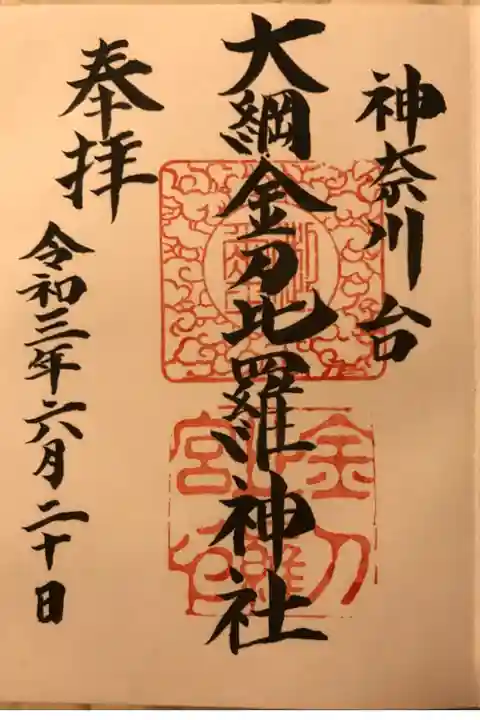 神奈川台
大綱金刀比羅神社
奉拝
令和三年六月二十日